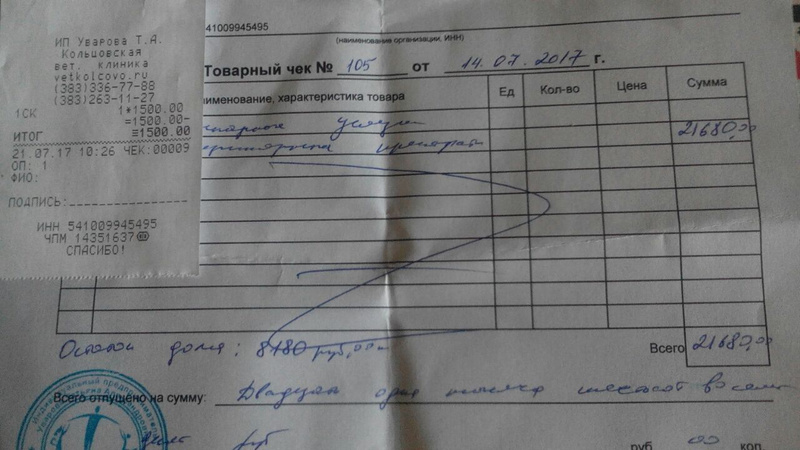 ИП Уварова Т.А.
Кольцовская
вет. клиника
vetkolcovo.ru
(383)336-77-88
(383)263-11-27
1СК 1*1500.00
=1500.00-
ИТОГ ≡1500.00
21.07.17 10:26 ЧЕК:00009
ОП: 1
ФИО:
ПОДПИСЬ:
ИНН 541009945495
ЧПМ 14351637
СПАСИБО!
41009945495
(наименование организации, ИНН)
Товарный чек № 105 от 14.07.2017 г.
именование, характеристика товара Ед Кол-во Цена Сумма
услуги 21680,00
Остаток долга: 8180 руб,00
Всего 21680,00
Всего отпущено на сумму: Двадцать одна тысяча шестьсот восемь
руб. 00 коп.
Индивидуальный предприниматель